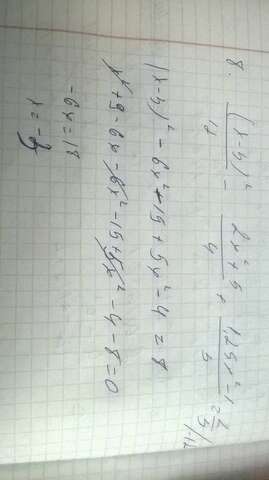 8. (x-3)²/12 - (2x²+5)/4 + (1,25x²-1)/3 = 2/3 |·12
(x-3)² - 6x² - 15 + 5x² - 4 = 8
x² + 9 - 6x - 6x² - 15 + 5x² - 4 - 8 = 0
-6x = 18
x = -3